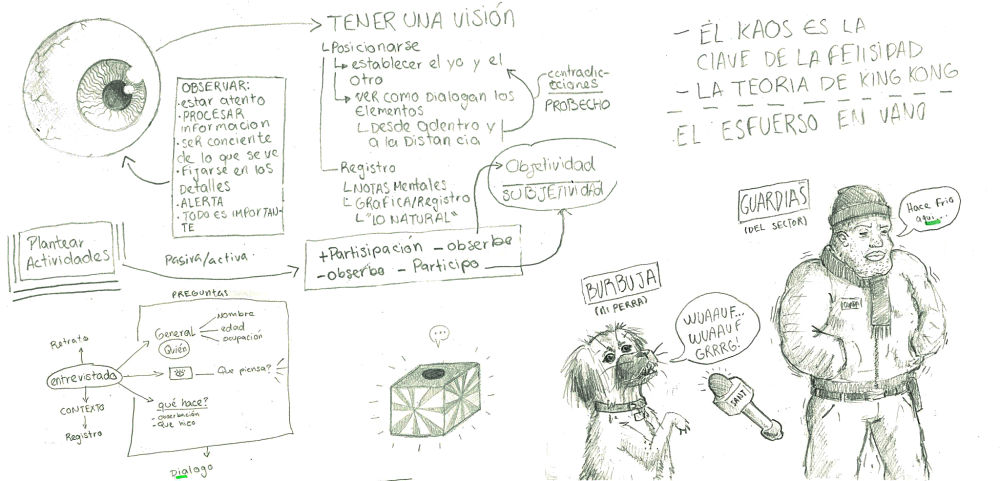 TENER UNA VISIÓN
Posicionarse
establecer el yo y el
otro
VER COMO Dialogan los
Elementos
Desde adentro y
a la Distancia
contradic-
cciones
PROBECHO
Registro
NOTAS Mentales
GRAFICA/Registro
"LO NATURAL"
OBSERVAR:
·estar atento
·PROCESAR
informacion
·SER conciente
de lo que se ve
·Fijarse en los
detalles
·ALERTA
·TODO ES IMPORTAN-
TE
Objetividad
SUBJETIVIDAD
Plantear
Actividades
Pasiva/activa.
+Partisipación - observo
-observo - Participo
PREGUNTAS
General
Nombre
edad
ocupación
Quién
Que piensa?
qué hace?
- observación
- que hico
Retrato
entrevistado
CONTEXTO
Registro
Dialogo
...
- EL KAOS ES LA
CLAVE DE LA FELISIDAD
- LA TEORIA DE KING KONG
- EL ESFUERSO EN VANO
GUARDIAS
(DEL SECTOR)
Hace frio
aqui...
BURBUJA
(MI PERRA)
WUAAUF...
WUAAUF
GRRRG!